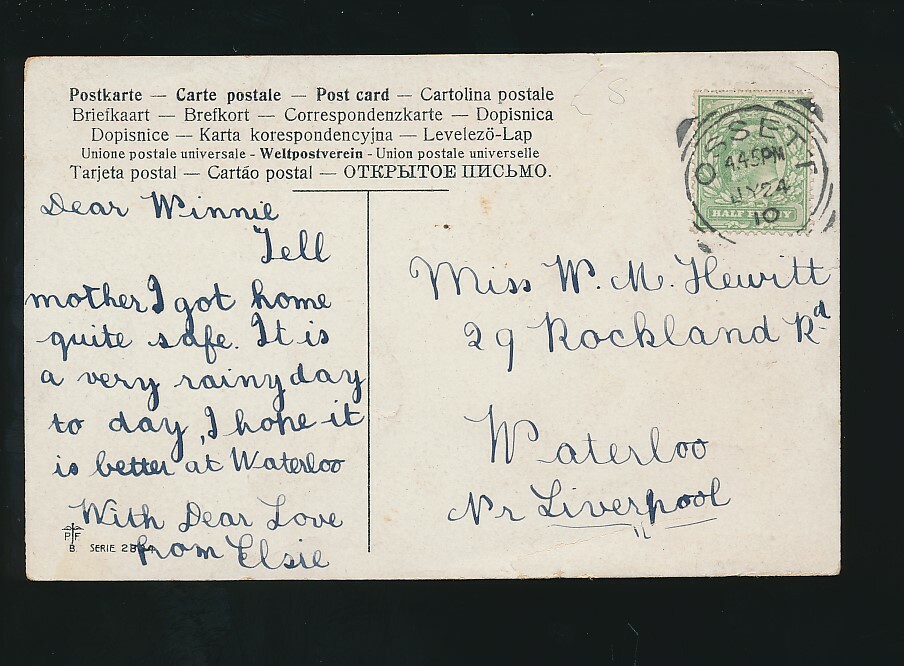 Postkarte — Carte postale — Post card — Cartolina postale
Briefkaart — Brefkort — Correspondenzkarte — Dopisnica
Dopisnice — Karta korespondencyjna — Levelező-Lap
Unione postale universale - Weltpostverein - Union postale universelle
Tarjeta postal — Cartão postal — ОТКРЫТОЕ ПИСЬМО.
OSSETT
4.45PM
JY 24
10
HALF PENNY
Dear Winnie
Tell
mother I got home
quite safe. It is
a very rainy day
to day, I hope it
is better at Waterloo
With Dear Love
from Elsie
P F
B. SERIE
Miss W. M. Hewitt
29 Rockland Rd
Waterloo
Nr Liverpool